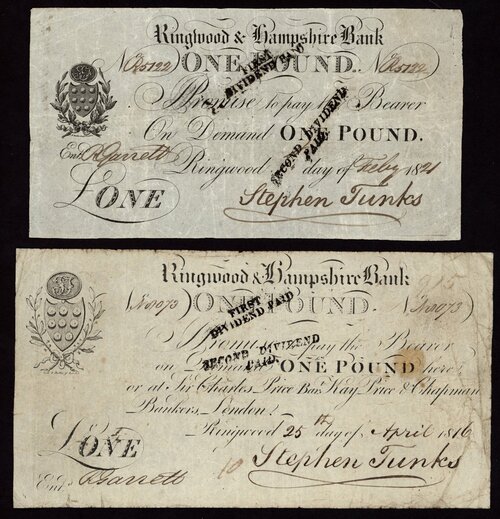 Ringwood & Hampshire Bank
ONE POUND.
FIRST
DIVIDEND PAID
I Promise to pay the Bearer
On Demand ONE POUND.
SECOND DIVIDEND
PAID.
Ent. R Garrett
Ringwood day of Feby 1821
£ONE
Stephen Tunks
Ringwood & Hampshire Bank
ONE POUND.
FIRST
DIVIDEND PAID
I Promise to pay the Bearer
SECOND DIVIDEND
PAID.
on Demand ONE POUND here
or at Sir Charles Price Bart. Kay, Price & Chapman
Bankers London
Ringwood 25th day of April 1816
£ONE
10
Stephen Tunks
Ent. R Garrett